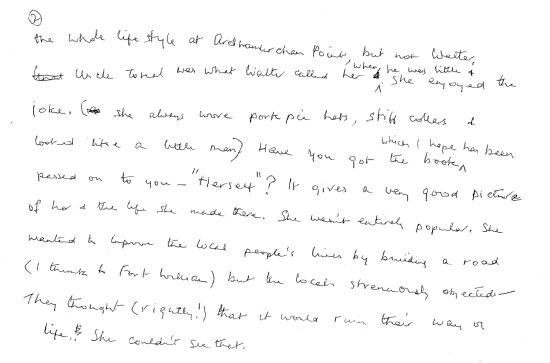 ②
the whole life style at Ardnamurchan Point, but not Walter.
Uncle Tonal was what Walter called her when he was little & she enjoyed the
joke. (she always wore pork pie hats, stiff collars &
looked like a little man) Have you got the book, which I hope has been
passed on to you – "Herself"? It gives a very good picture
of her & the life she made there. She wasn't entirely popular. She
wanted to improve the local people's lives by building a road
(I think to Fort William) but the locals strenuously objected –
They thought (rightly!) that it would ruin their way of
life. She couldn't see that.